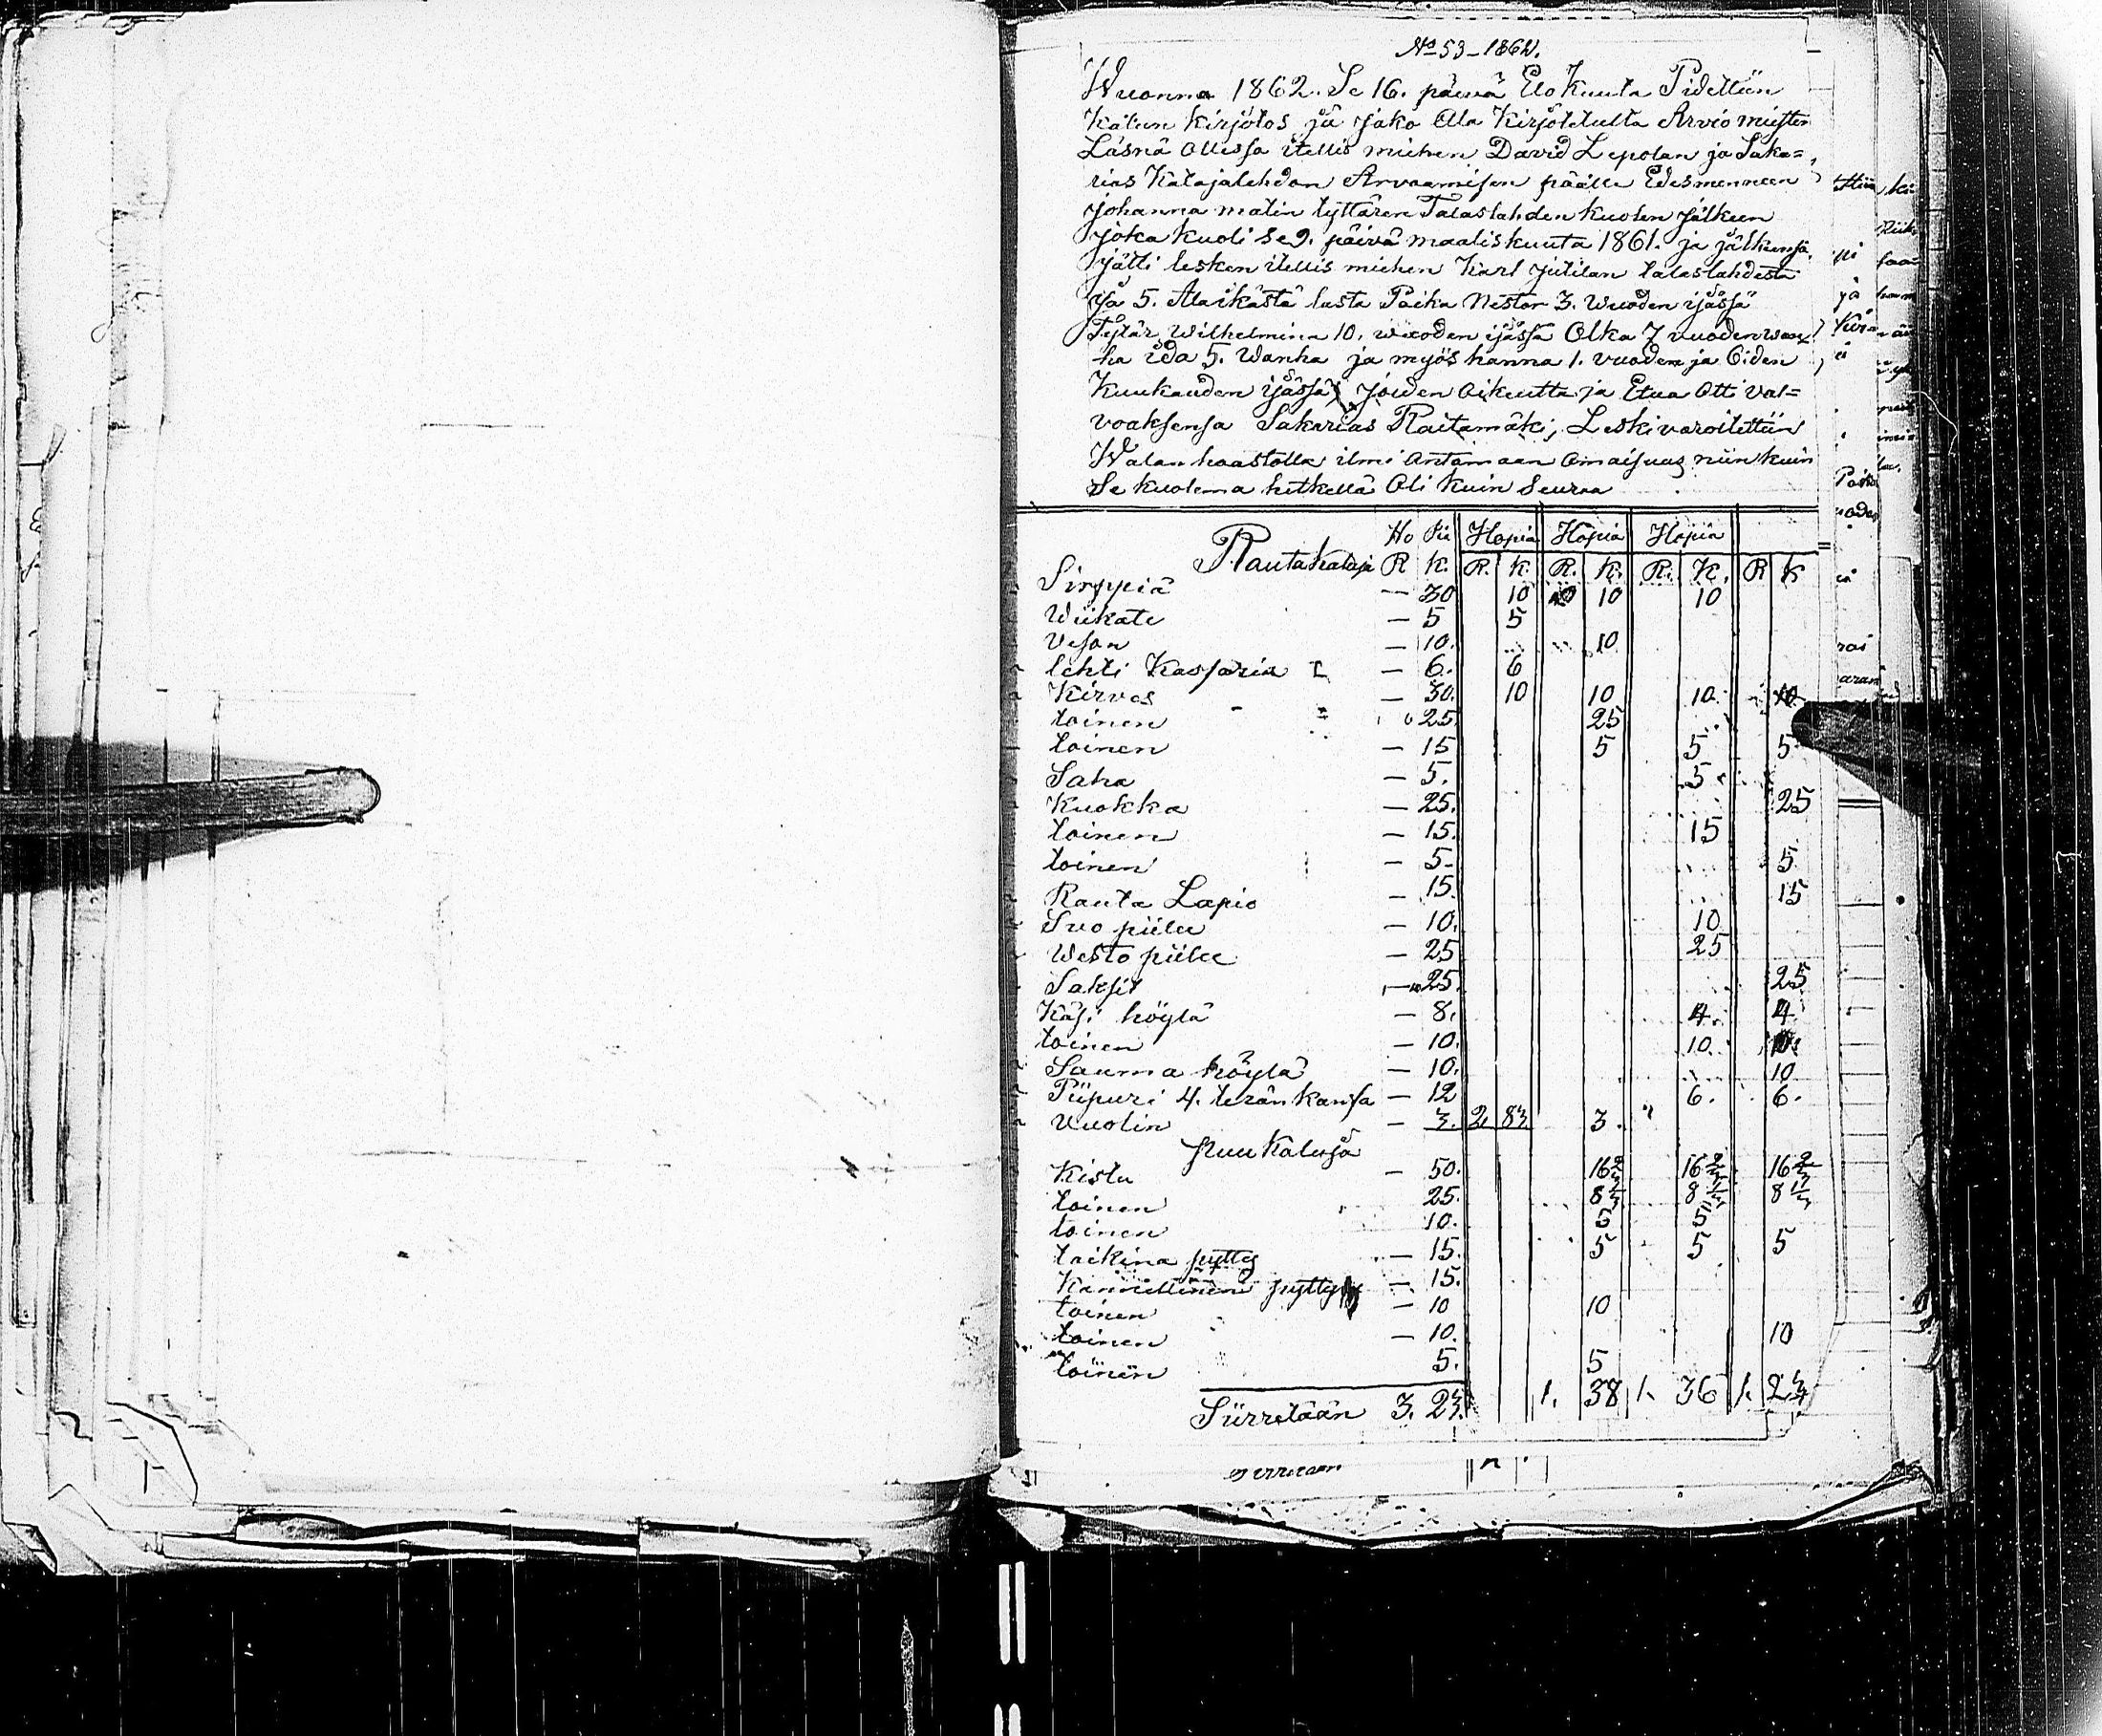 No 53–1862.
Wuonna 1862. Se 16. päivä Elo Kuuta Pidettiin
Kalun Kirjotos ja Jako Alla Kirjotetulta Arvio miesten
Läsnä Ollessa itellis miehen David Lepolan ja Saka=
rias Katajalehdon Arvaamisen päälle Edesmenneen
Johanna matin tyttären Talaslahden Kuolen jälkeen
Joka Kuoli se 9. päivä maaliskuuta 1861. ja jälkensä
jätti lesken itellis miehen Karl Jutilan talaslahdesta
ja 5. Alaikästä lasta Poika Nestor 3. Wuoden ijässä
Tytär Wilhelmina 10. wuoden ijässä Olka 7 vuoden wan
ha ida 5. Wanha ja myös hanna 1. vuoden ja 6:den
Kuukauden ijässä Joiden Oikeutta ja Etua Otti val=
voaksensa Sakarias Raitamäki, Leski varoitettiin
Walan haastolla ilmi Antamaan Omaisuus niin kuin
Se kuolema hetkellä Oli Kuin Seuraa
Ho Pia Hopia Hopia Hopia
Rautakaluja R K. R. K. R. K. R. K. R K
Sirppiä — 30 10 10 10
Wiikate — 5 5
Vesan — 10. 10
lehti — 6. 6
Kirves — 30. 10 10 10
toinen 25. 25
toinen — 15 5 5 5
Saha — 5. 5
Kuokka — 25. 25
toinen — 15. 15
toinen — 5– 5
Rauta Lapio — 15. 15
Suo piilu — 10. 10
Westo piilu — 25 25
Saksit — 25. 25
Käsi höylä — 8. 4 4
toinen — 10. 10
Sauma höylä — 10. 10
Piipuri 4. terän kansa — 12 6. 6.
Vuolin — 3. 2 83 3.
Puu Kaluja
Kistu — 50. 16 2/3 16 2/3 16 2/3
toinen 25. 8 1/3 8 1/3 8 1/3
toinen 10. 5 5
taikina pytty — 15. 5 5 5
Kannellinen pytty — 15.
toinen — 10 10
toinen — 10. 10
toinen 5. 5
Siirretään 3. 23. 1. 38 1. 36 1. 24